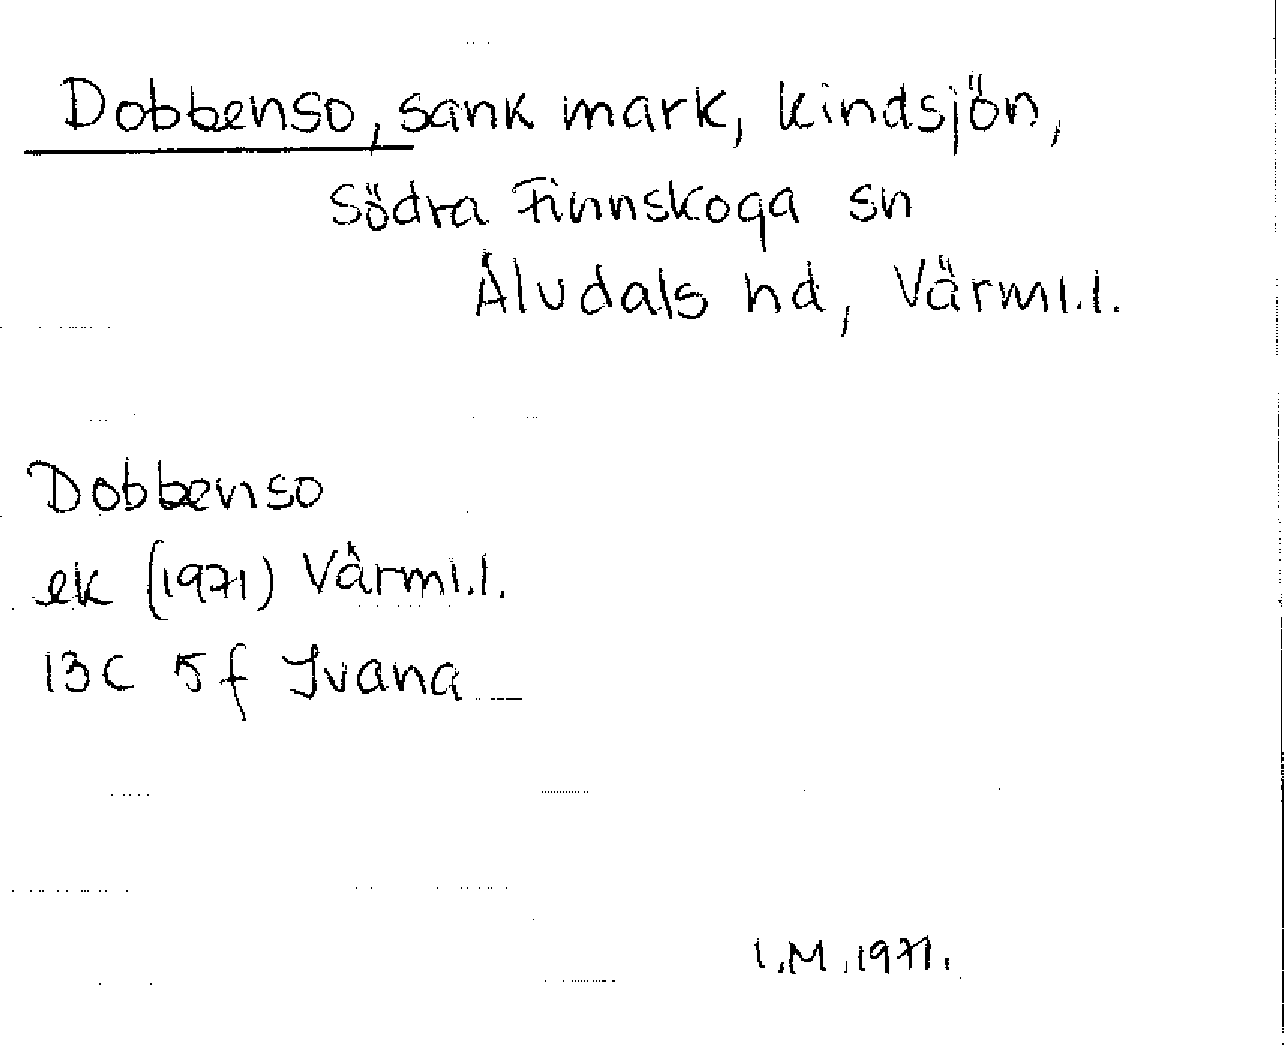 Dobbenso, sank mark, Kindsjön,
Södra Finnskoga sn
Älvdals hd, Värml.l.
Dobbenso
ek (1971) Värml.l.
13C 5f Ivana
I.M. 1971.